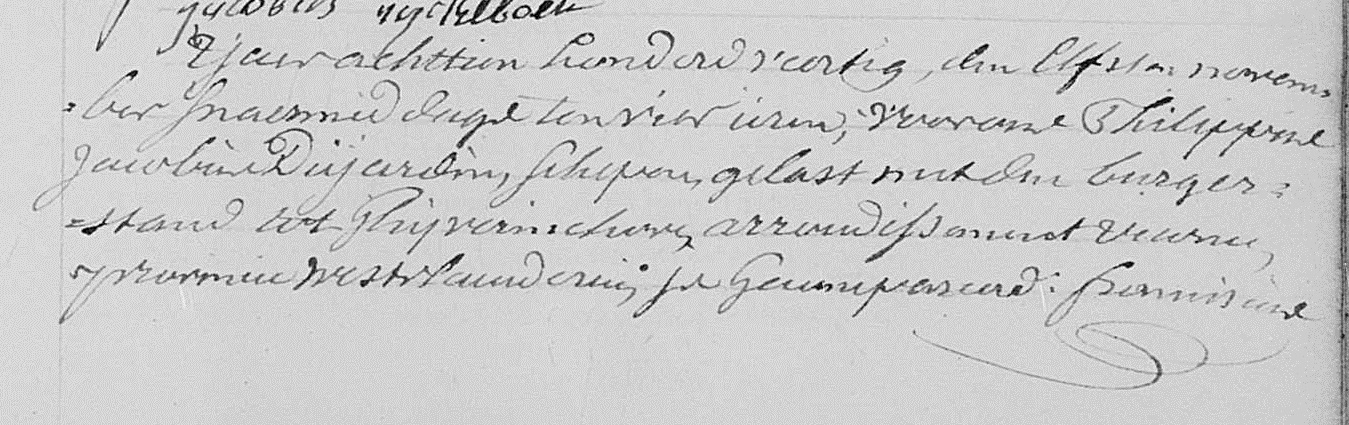 Jacobus Ryckelboer
T'jaer achttien honderd veertig, den Elfsten novem=
=ber s'naermiddags ten vier uren, Voor ons Philippus
Jacobus Dujardin, schepen, gelast met den burger=
=stand tot Ghyverinchove, arrondissement veurne,
provincie westvlaenderen, is gecompareerd: Franciscus